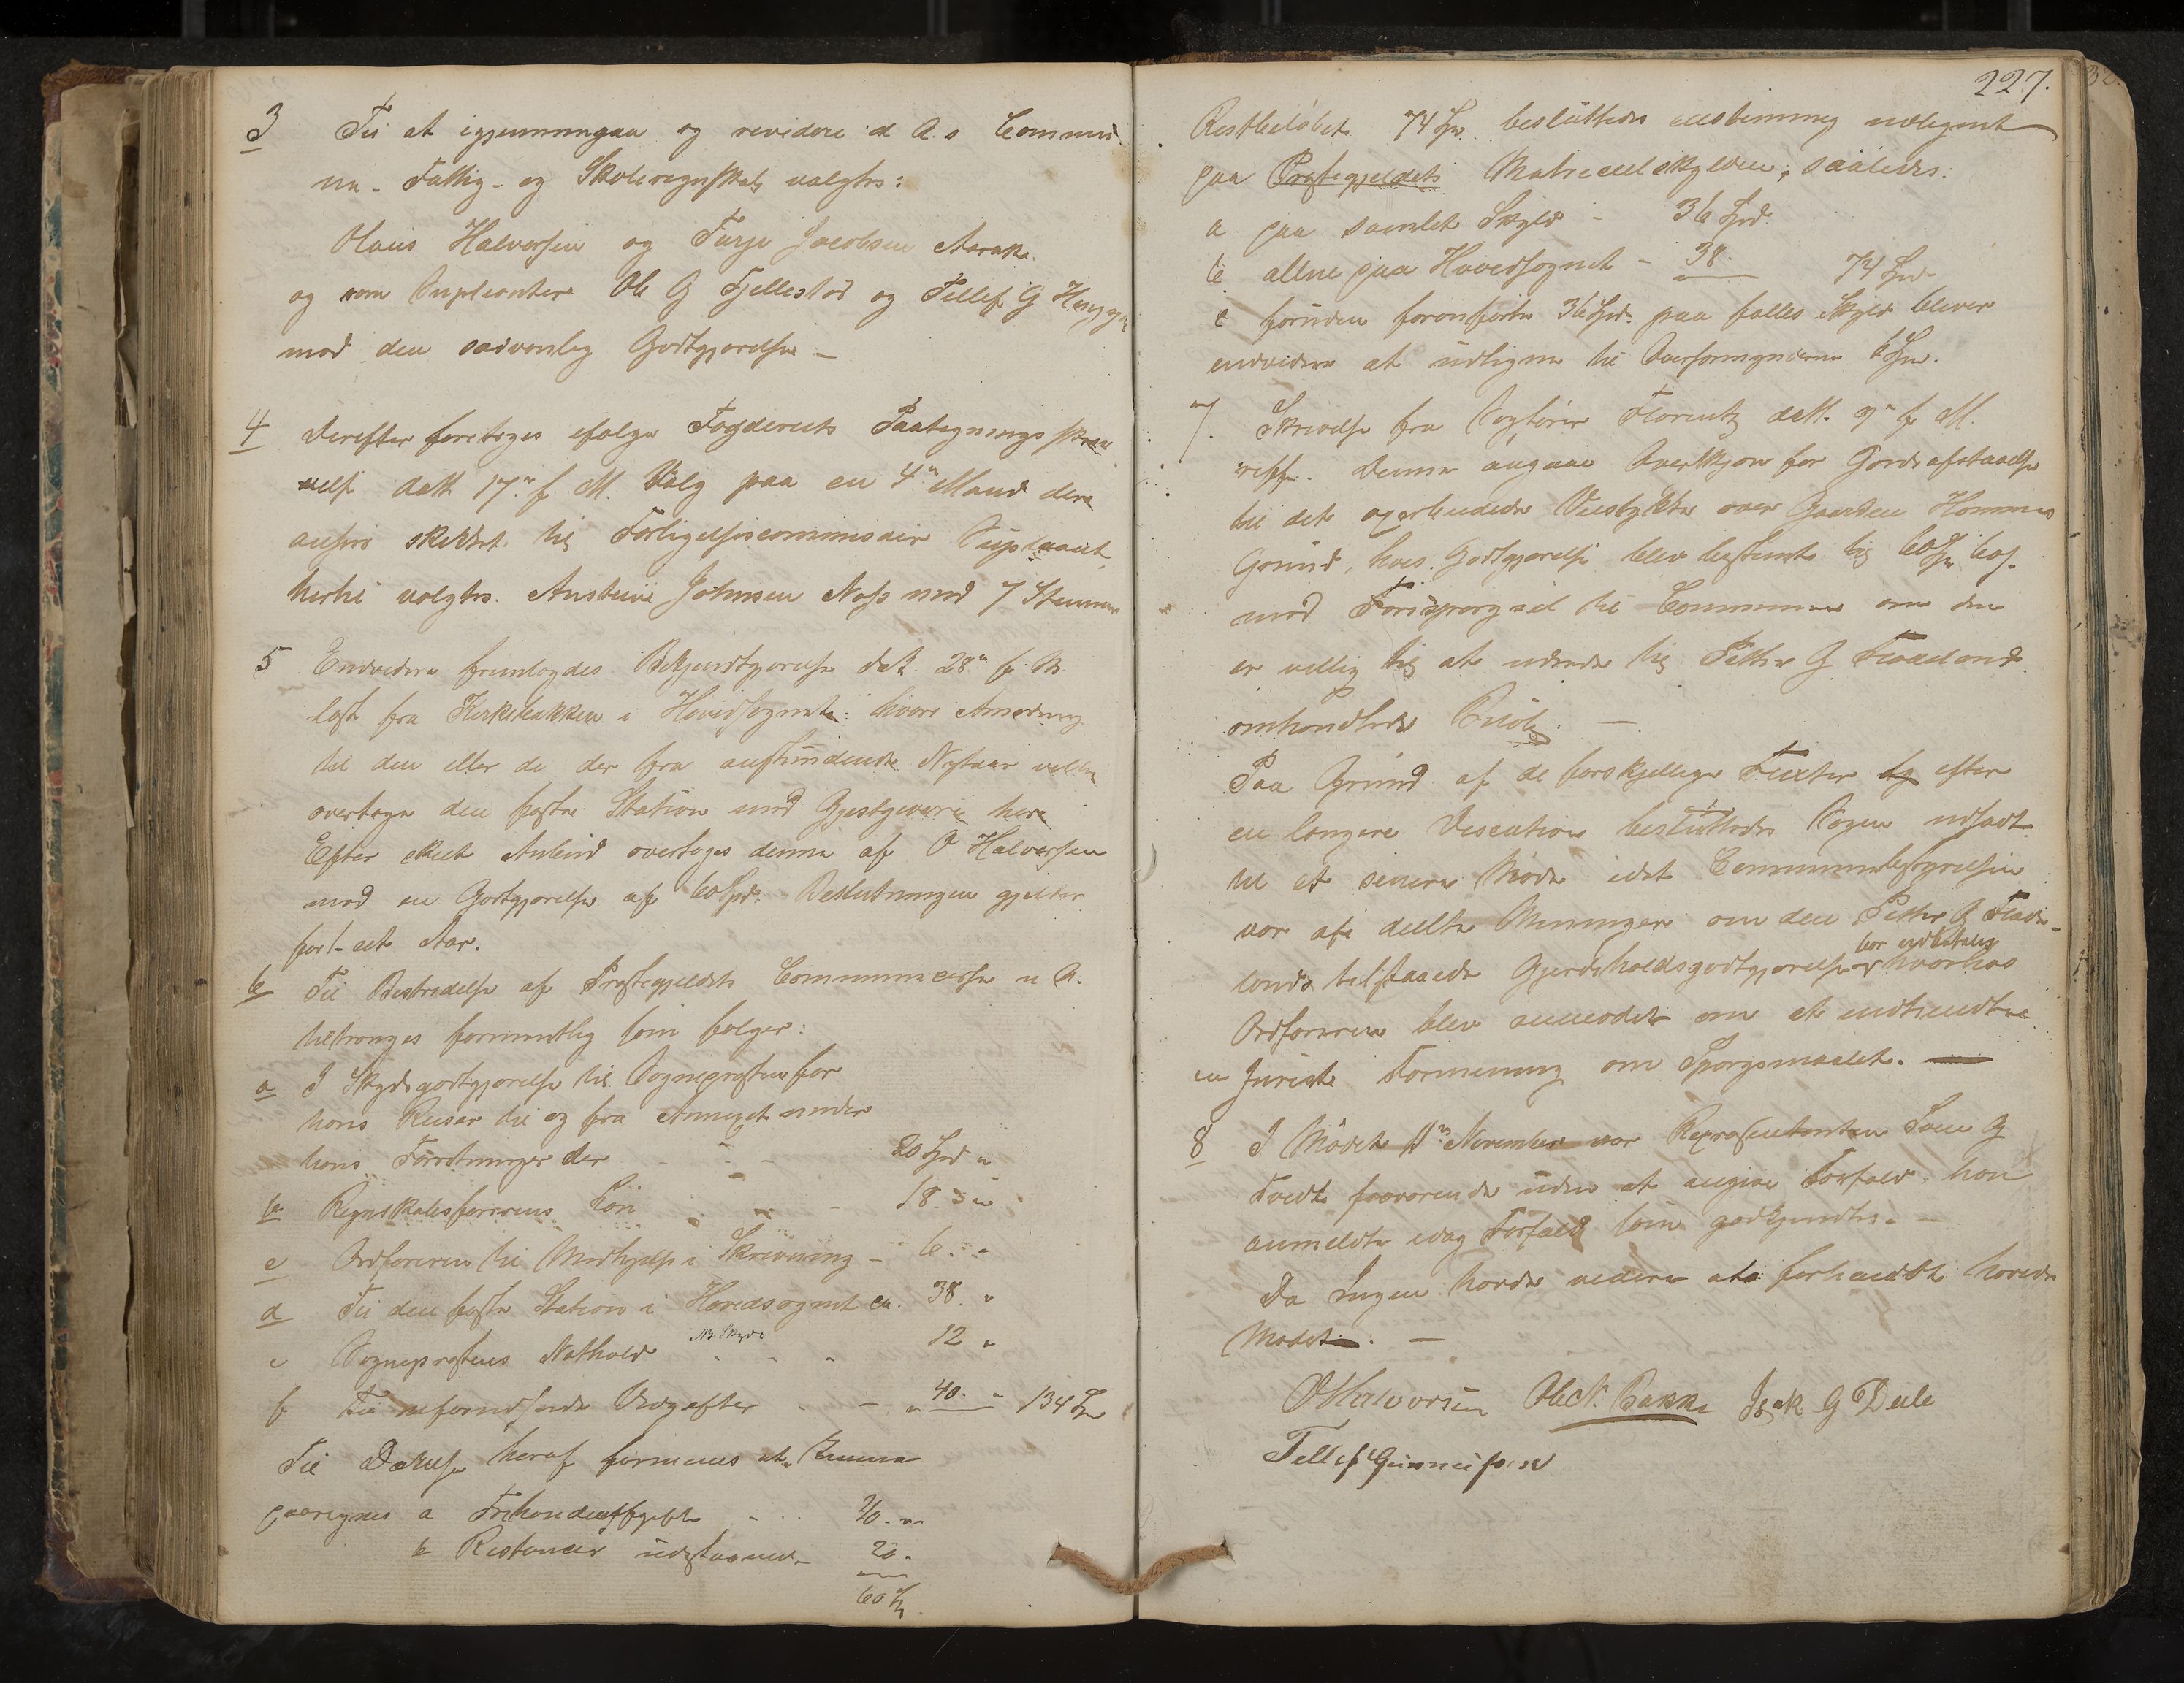 3 Til at igjennemgaa og revidere d A.s Commu
ne- Fattig- og Skoleregnskab valgtes:
Olaus Halvorsen og Terje Jacobsen Aarak.
og som Supleanter Ole G Fjellestad og Tellef G
mod den sædvanlig Godtgjørelse –
4 Derefter foretoges ifølge Fogderiets Paategnings
datt 17.n f. M. Valg paa en 4n Mand
til Forligelsescommisair Supleant
hertil valgtes. Austein Johnsen Næss med 7 Stemmer
5 Endvidere fremlagdes Bekjendtgjørelse dat. 28n f. M.
læst fra Kirkebakken i Hovedsognet hvori Anmodning
til den eller de der fra anstundende Nytaar vilde
overtage den faste Station med Gjestgiveri her
Efter skeet Anbud overtoges denne af O Halvorsen
mod en Godtgjørelse af 60 Spd. Beslutningen gjelder
for 1- et Aar.
6 Til Bestridelse af Præstegjeldets Communecasse n A.
tiltrænges formentlig som følger:
a I Skydsgodtgjørelse til Sognepræsten for
hans Reiser til og fra Annexet under
hans Forretninger der - - - 20 Spd "
b Regnskabsførerens Løn - - - 18 - "
c Ordføreren til Medhjelp i Skrivning - 6. "
d Til den faste Station i Hovedsognet ca. 38. "
e Sognepræstens Nathold - - - 12 "
f Til uforudseede Udgifter - - " 40. " 134 Spd
Til Dækelse heraf formenes at kunne
paaregnes a Frihandelsafgift - - - 40. "
b Restancer udestaaende - 20 "
60 Sp.
227.
Restbeløbet 74 Spd. besluttedes eenstemmig udlignet
paa Præstegjeldets Matrikulskylden, saaledes:
a paa samlet Skyld - 36 Spd.
b alene paa Hovedsognet - 38. 74 Spd
c foruden foranførte 36 Spd. paa fælles Skyld bliver
endvidere at udligne til Overformynderne 6 Spd.
7. Skrivelse fra Florentz datt. 9n f. M.
Denne angaar Overskjøn for Gjerdeafstaaelse
til det Veistykke over Gaarden Hommes
Grund, hvis Godtgjørelse blev bestemt til 60 Spd
med Forespørgsel til Communen om den
er villig til at udrede til Petter G Fladeland
omhandlede Beløb. –
Paa Grund af de forskjellige efter
en længere Discution besluttedes Sagen udsadt
til et senere Møde idet Communebestyrelsen
var af deelte Meninger om den Petter G Flade-
bør udbetales
lands tilstaaede Gjerdeholdsgodtgjørelse hvorhos
Ordføreren blev anmodet om at indhendte
en Jurists Formening om Spørgsmaalet. –
8 I Mødet 11n November var Repræsentanten G
Tvedt fraværende uden at angive Forfald. han
anmeldte idag Forfald som godkjendtes. –
Da Ingen havde videre at forhandle hævedes
Mødet. –
O Halvorsen Ole N. Bakke Isak G Dale
Tellef Gunneusen